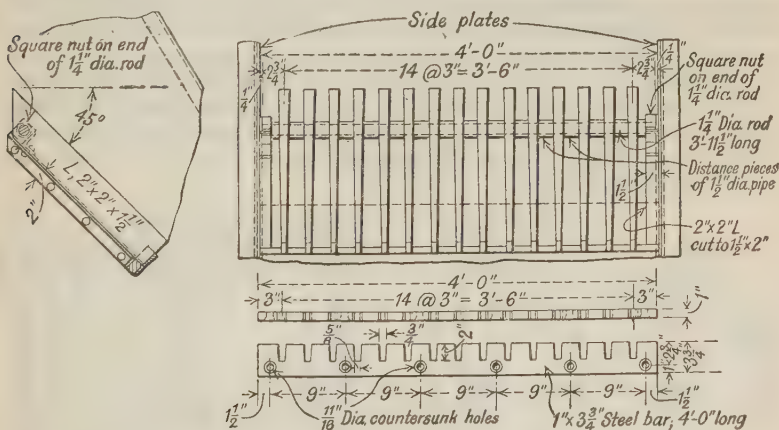 Side plates
4'-0"
Square nut on end
of 1 1/4" dia. rod
45°
L, 2"x2"x1 1/2"
2"
2 3/4"
14 @ 3" = 3'-6"
2 3/4"
1/4"
1/4"
Square nut
on end of
1 1/4" dia. rod
1 1/4" Dia. rod
3'-11 1/2" long
Distance pieces
of 1 1/2" dia. pipe
1 1/2"
2"x2" L
cut to 1 1/2"x2"
4'-0"
3"
14 @ 3" = 3'-6"
3"
1"
5/8"
3/4"
2"
1"
2 3/4"
3 3/4"
9"
9"
9"
9"
9"
1 1/2"
11/16" Dia. countersunk holes
1"x3 3/4" Steel bar, 4'-0" long
1 1/2"